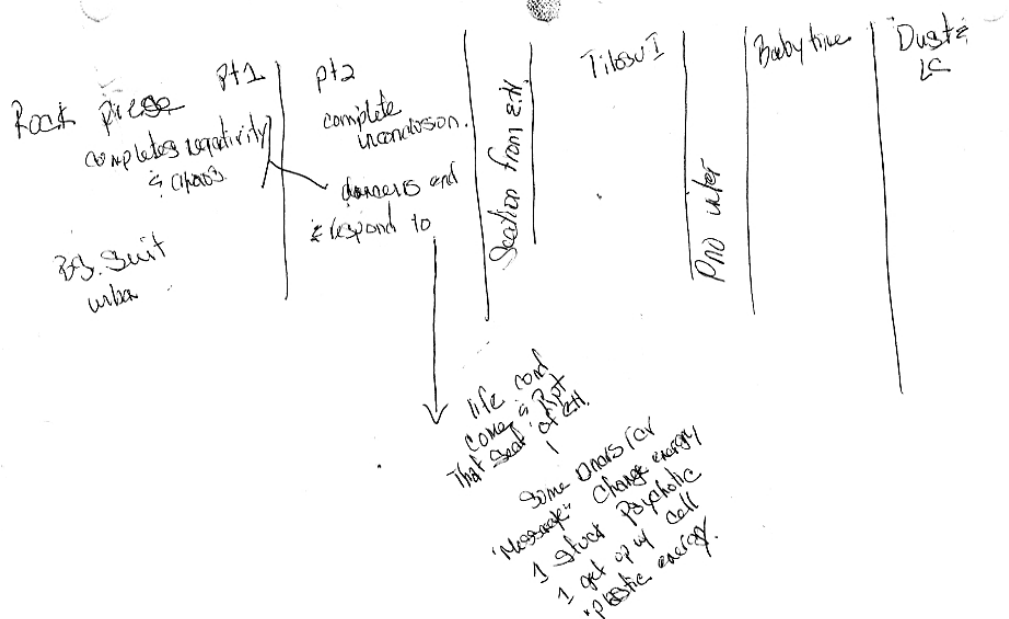 Rock piece pt1
completes negativity
& chaos
BS. Suit
urba
pt2
complete
inconclusion.
dancers and
& respond to
Section from E.H.
I
Pno inter
Baby time
Dust &
LC
life cont
come & Rpt
That Sect of EH.
Some
"Message" change energy
1 stuck Psychotic
1 get up w/ call
"plastic energy.